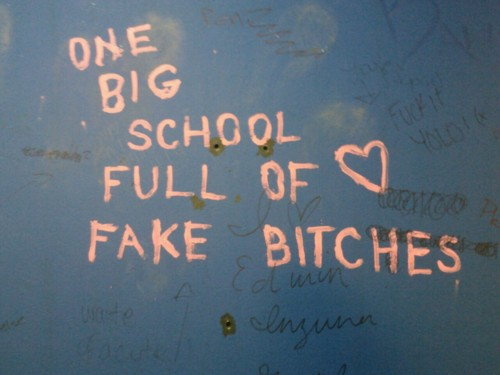 ONE
BIG
SCHOOL
FULL OF
FAKE BITCHES
FUCK IT
YOLO!
I ♡
Edwin